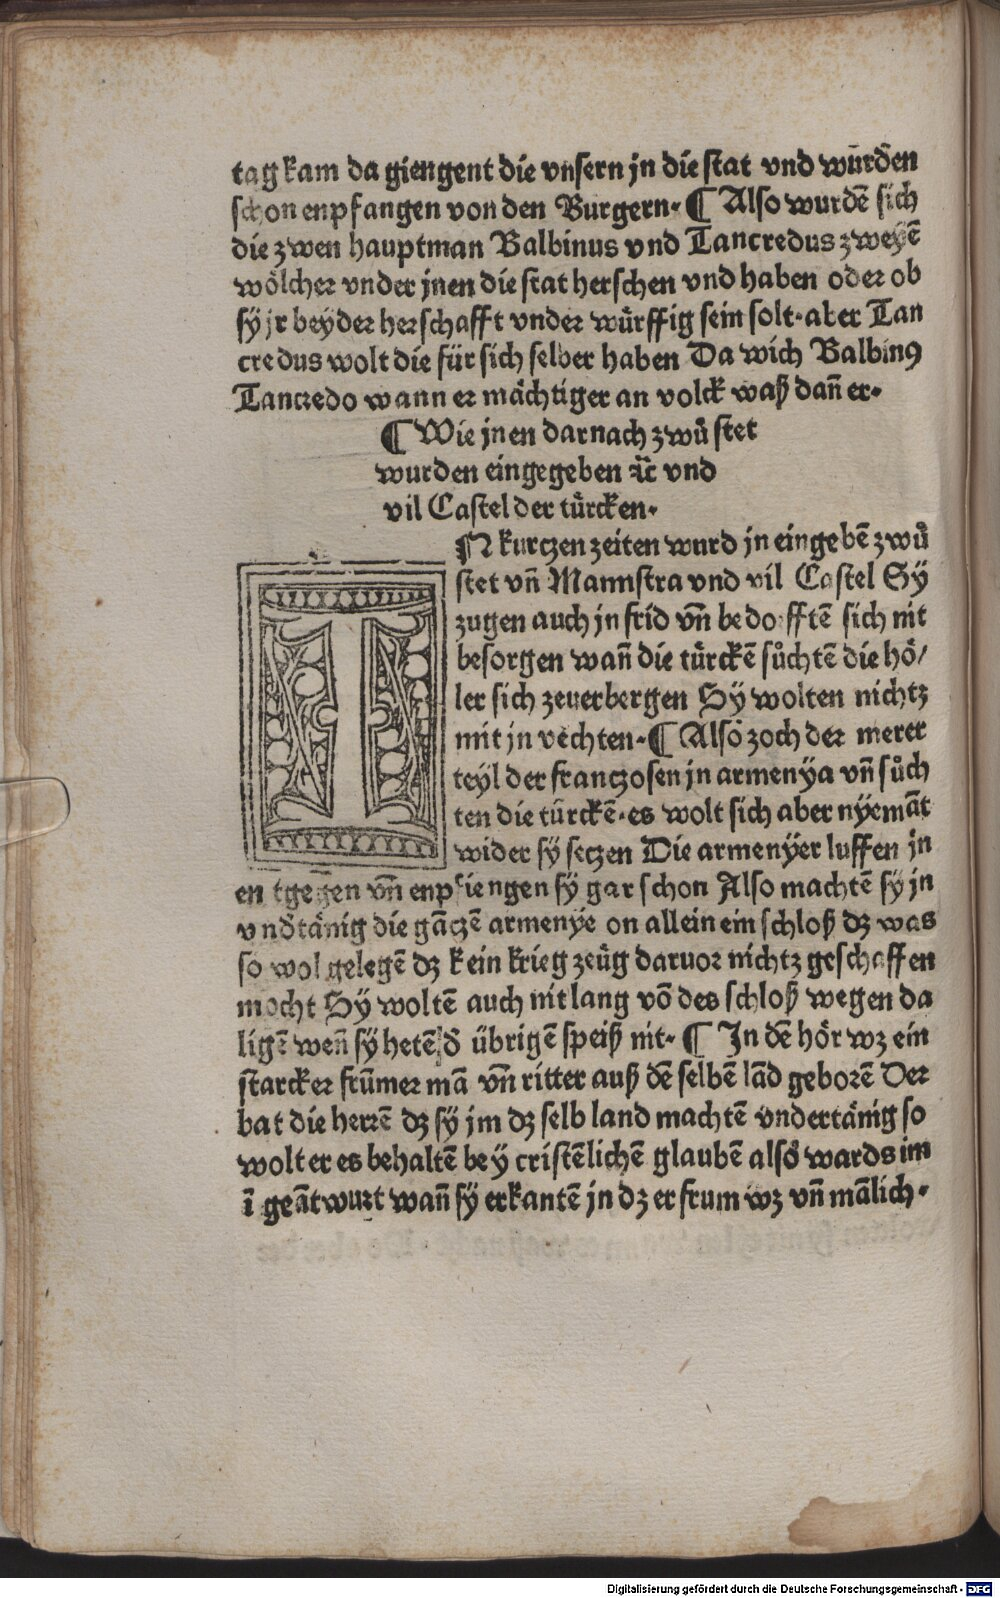 tag kam da giengent die vnsern jn die stat vnd wurdẽn
schon enpfangen von den Burgern· ¶ Also wurdẽ sich
die zwen hauptman Balbinus vnd Tancredus zweyẽ
woͤlcher vnder jnen die stat herschen vnd haben oder ob
sÿ jr beyder herschafft vnder wuͤrffig sein solt· aber Tan
credus wolt die für sich selber haben Da wich Balbinꝯ
Tancredo wann er maͤchtiger an volck waß dañ er·
¶ Wie jnen darnach zwuͦ stet
wurden eingegeben ⁊c̈ vnd
vil Castel der tuͤrcken·
IN kurczen zeiten wurd jn eingebẽ zwuͦ
stet vñ Mannstra vnd vil Castel Sÿ
zugen auch jn frid vñ bedorfftẽ sich nit
besorgen wañ die tuͤrckẽ suͦchtẽ die hoͤ/
ler sich zeuerbergen Sÿ wolten nichtz
mit jn vechten· ¶ Also zoch der merer
teyl der franczosen jn armenÿa vñ suͦch
ten die tuͤrckẽ· es wolt sich aber nÿemãt
wider sÿ seczen Die armenÿer luffen jn
en tgegen vñ enpfiengen sÿ gar schon Also machtẽ sÿ jn
vndtaͤnig die gãczẽ armenye on allein ein schloß dz was
so wol gelegẽ dz kein krieg zeüg daruor nichtz geschaffen
mocht Sÿ woltẽ auch nit lang võ des schloß wegen da
ligẽ weñ sÿ hetẽ d̄ übrigẽ speiß nit· ¶ In dẽ hoͤr wz ein
starcker frũmer mã vñ ritter auß dẽ selbẽ lãd geborẽ Der
bat die herrẽ dz sÿ jm dz selb land machtẽ vndertaͤnig so
wolt er es behaltẽ bey cristẽlichẽ glaubẽ also wards im
ĩ geãtwurt wañ sÿ erkantẽ jn dz er frum wz vñ mãlich·
Digitalisierung gefördert durch die Deutsche Forschungsgemeinschaft - DFG